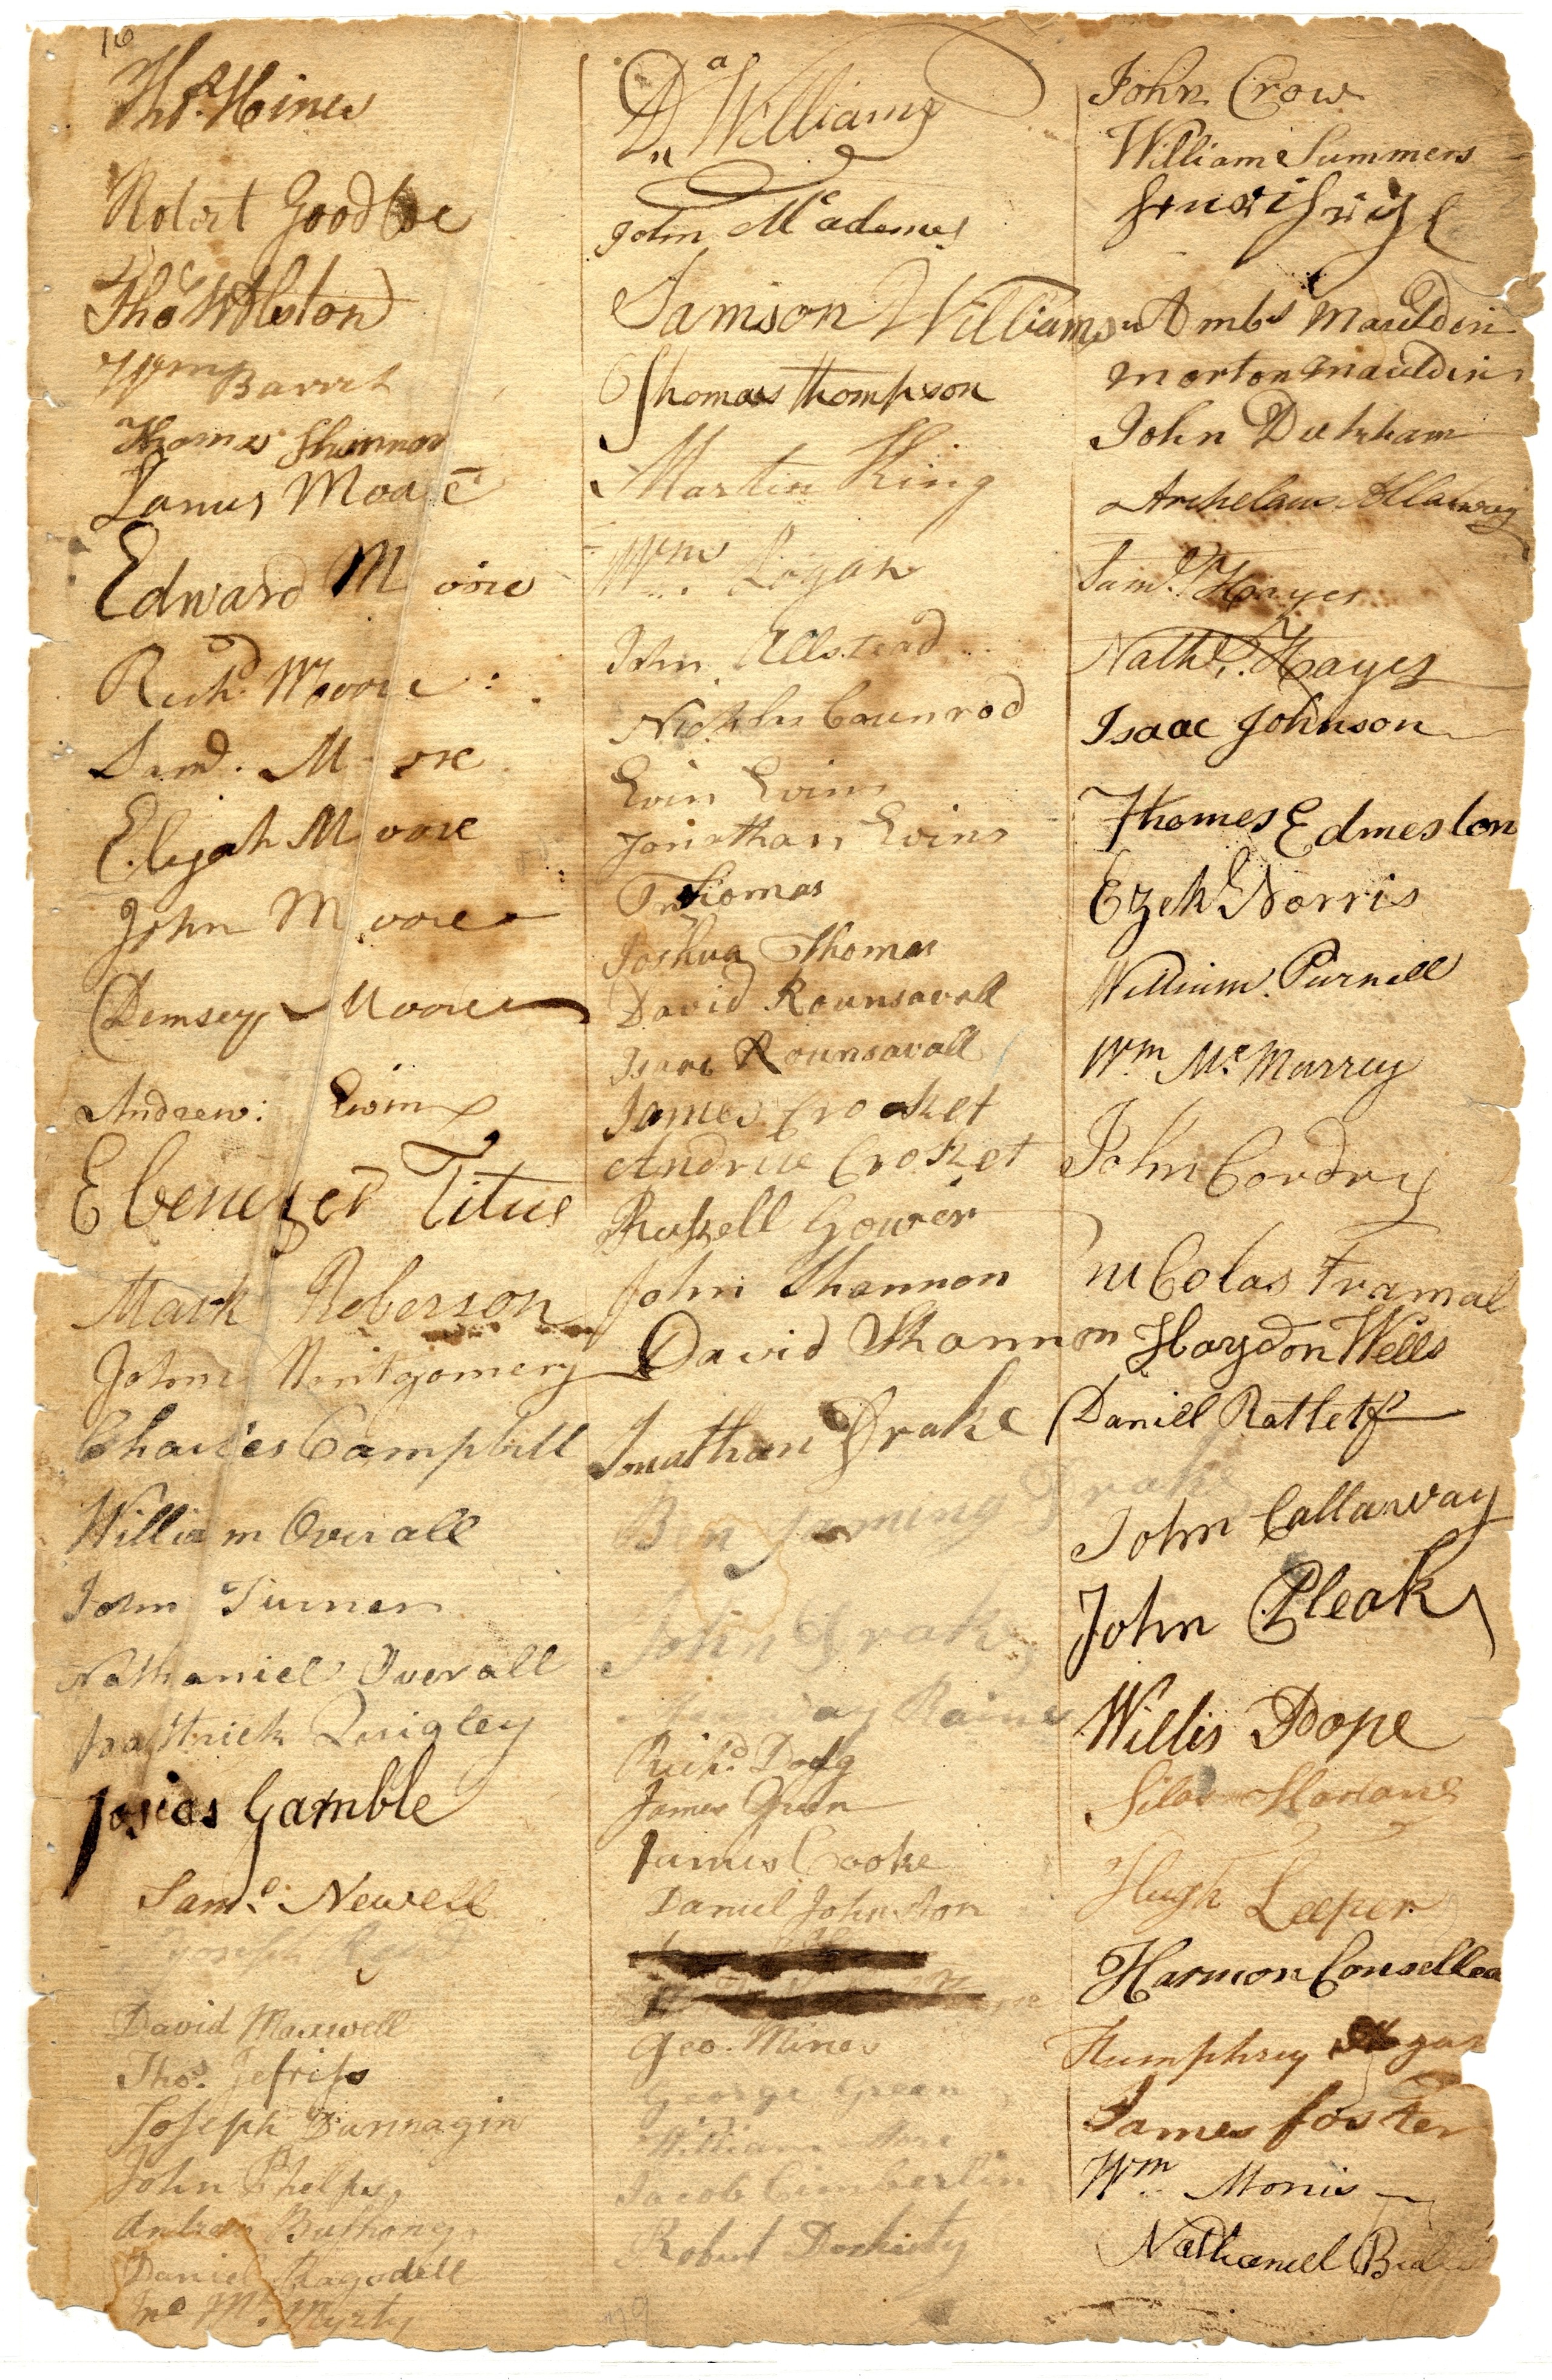 16
Thos. Hines
Robert Goodloe
Thos W Alston
Wm Barret
Thomas Shannon
Lanus Moore
Edward Moore
Richd. Moore
Saml. Moore
Elijah Moore
John Moore
Demsey Moore
Andrew: Ewin
Ebenezer Titus
Mark Roberson
John Montgomery
Charles Campbell
William Overall
John Turner
Nathaniel Overall
Patrick Quigley
Josias Gamble
Saml. Newell
Joseph
David Maxwell
Thos. Jefriss
Joseph Dunnagin
John Phelps
Buthong
Daniel Ragsdell
Jno
Da Williams
John Mcadames
Samson Williams
Thomas thompson
Martin King
Wm. Logan
John Ellstead
Nicholus Counrod
Evin Evins
Jonathan Evins
Jn Thomas
Joshua Thomas
David Rounsavall
Isaac Rounsavall
James Crocket
Andrue Crocket
Russell Gower
John Shannon
David Shannon
Jonathan Drake
Benjaming Drake
John Drake
Raines
Richd. Dodg
James Green
James Cooke
Daniel Johnston
Geo. Mines
George Green
William More
Jacob Cimberlin
Robert Dorherty
John Crow
William Summers
Ambs Mauldin
Morton Mauldin
John Duckham
Archelaus Allaway
Saml. Hayes
Nathl. Hayes
Isaac Johnson
Thomes Edmeston
Ezekl Norris
William Purnell
Wm Mc Murrey
John Cordry
niColas Tramal
Haydon Wells
Daniel Ratletf
John Callaway
John Pleak
Willis Pope
Silas Harlans
Hugh Leeper
Harmon Consellea
Humphrey Hogan
James foster
Wm. Morris
Nathaniel